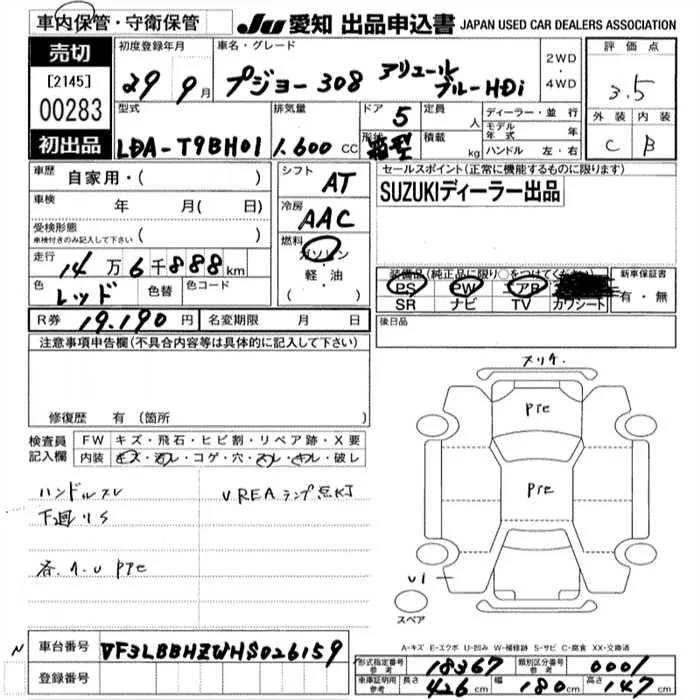 車内保管・守衛保管
JU 愛知 出品申込書 JAPAN USED CAR DEALERS ASSOCIATION
売切
[2145]
00283
初出品
初度登録年月
29 9月
車名・グレード
プジョー 308 アリュール
ブルーHDi
2WD
・
4WD
評価点
3.5
外装 内装
C B
型式
LDA-T9BH01
排気量
1.600 CC
ドア 5
形状 箱型
定員 人
積載 kg
ディーラー・並行
モデル年式 年
ハンドル 左・右
車歴 自家用・( )
車検 年 月( 日)
受検形態
車検付きのみ記入して下さい ( )
走行 14万6千888km
色 レッド 色替 色コード
シフト AT
冷房 AAC
燃料 ガソリン
・
軽・油
( )
セールスポイント(正常に機能するものに限ります)
SUZUKIディーラー出品
装備品(純正品に限り○をつけてください)
PS PW エアB
SR ナビ TV カワシート
新車保証書
有・無
R券 19.190円 名変期限 月 日
後日品
注意事項申告欄(不具合内容等は具体的に記入して下さい)
修復歴 有(箇所 )
検査員記入欄
FW キズ・飛石・ヒビ割・リペア跡・X要
内装 キズ・汚レ・コゲ・穴・スレ・キレ・破レ
ハンドルスレ
下廻りS
UREAランプ点灯
メリケ.
Pte
Pte
U1
スペア
A-キズ E-エクボ U-凹み W-補修跡 S-サビ C-腐食 XX-交換済
N
車台番号 VF3LBBHZWHS026159
登録番号
形式指定番号 参考 18367 類別区分番号 参考 0001
車庫証明用 参考 長さ 426 幅 180 高さ 147